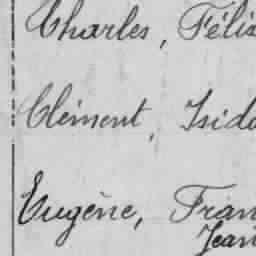 Charles, Félix
Clément, Isido
Eugène, Fran
Jean